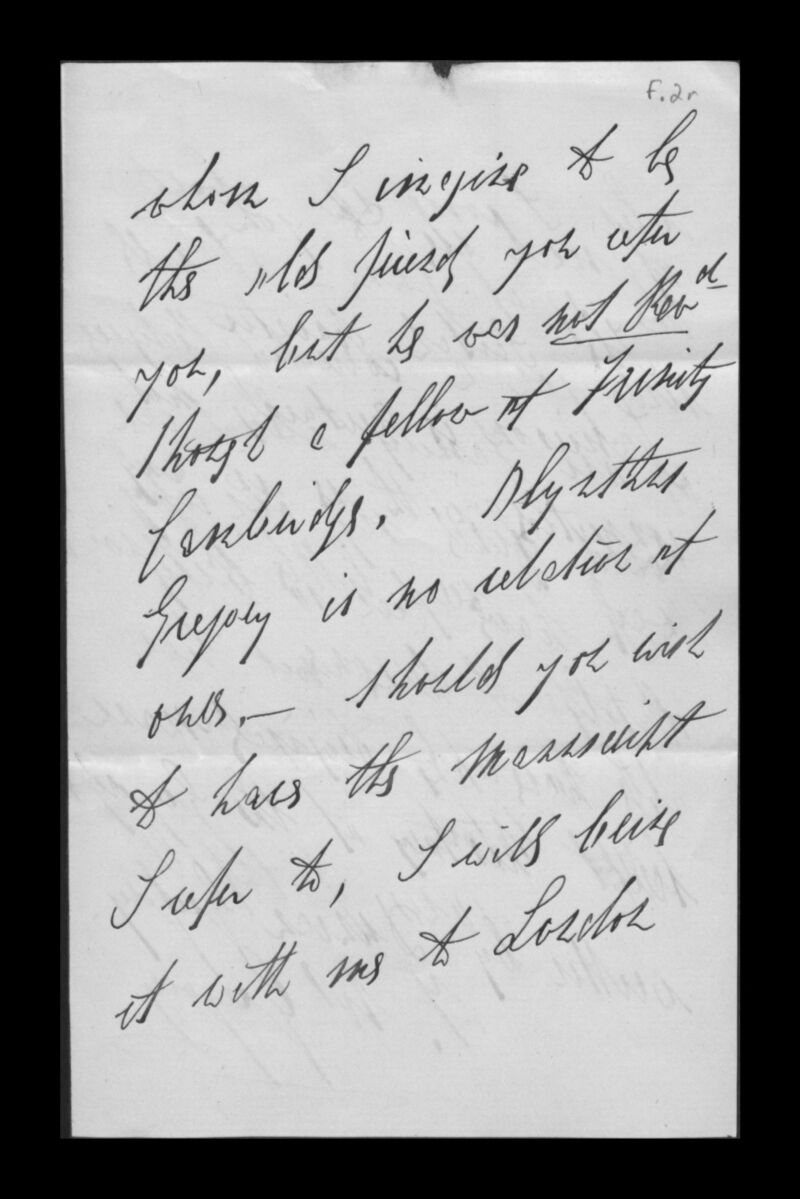 F.2r
whom I imagine to be
the old friend you refer
you, but he was not Revd
though a fellow of Trinity
Cambridge.
Gregory is no relation of
ours. — Should you wish
to have the Manuscript
I refer to, I will bring
it with me to London